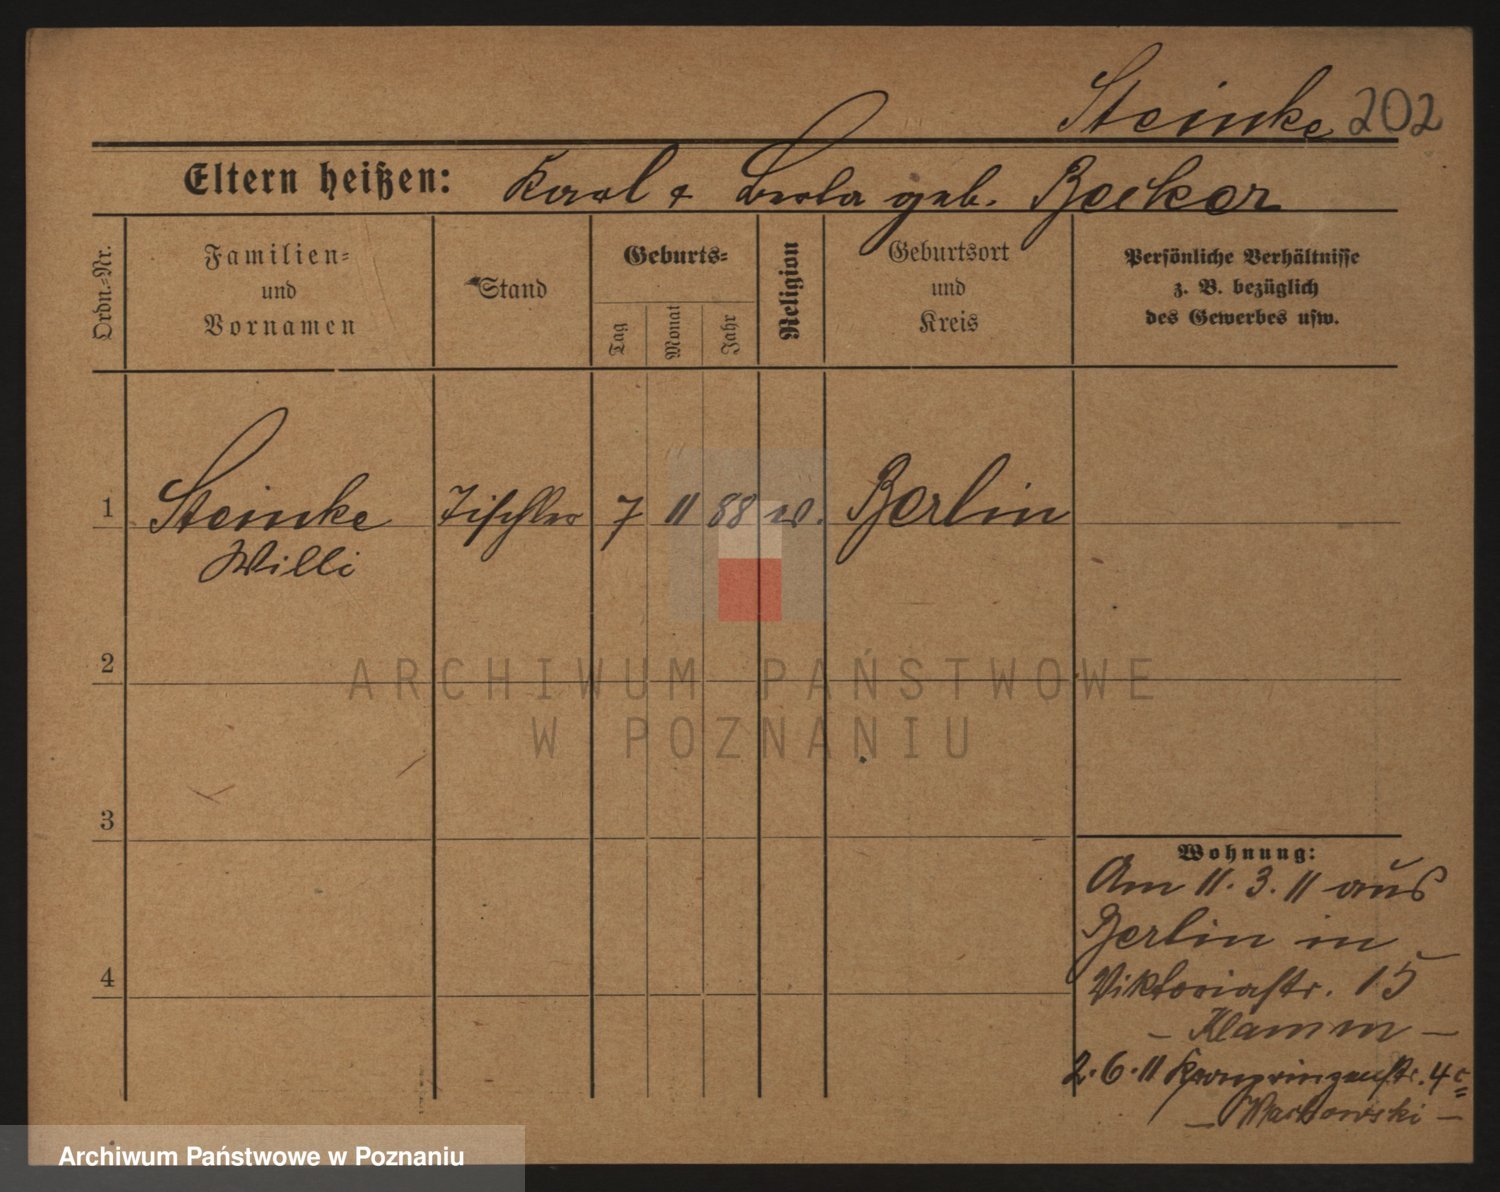 Steinke 202
Eltern heißen: Karl & geb. Becker
Ordn.-Nr.
Familien- und Vornamen
Stand
Geburts-
Tag
Monat
Jahr
Religion
Geburtsort und Kreis
Persönliche Verhältnisse
z. B. bezüglich
des Gewerbes usw.
1 Steinke Tischler 7 11 88 Berlin
Willi
2
ARCHIWUM PAŃSTWOWE
W POZNANIU
3
Wohnung:
Am 11. 3. 11 aus
Berlin in
4
Viktoriastr. 15
– Klamm –
2. 6. 11 Kronprinzenstr. 4c
Archiwum Państwowe w Poznaniu